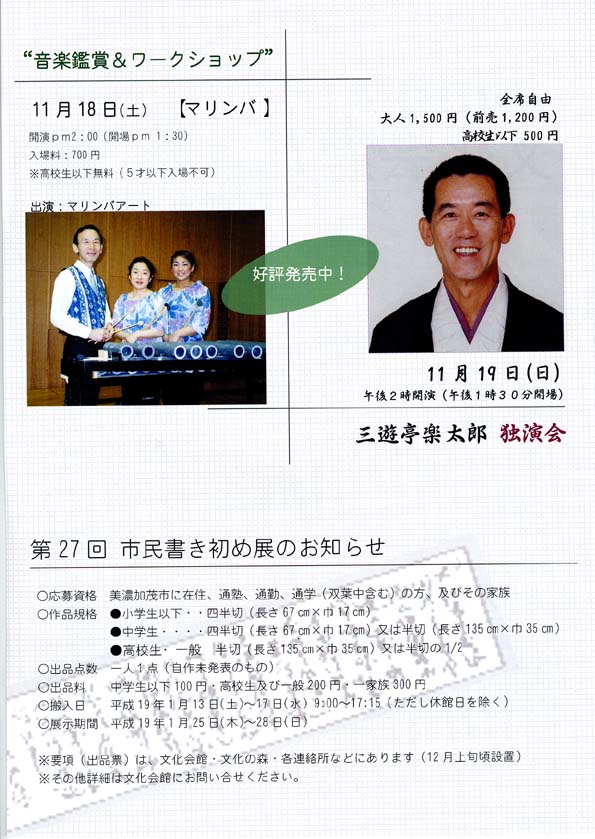 “音楽鑑賞＆ワークショップ”
11月18日(土) 【マリンバ】
開演pm2：00（開場pm 1：30）
入場料：700円
※高校生以下無料（５才以下入場不可）
出演：マリンバアート
好評発売中！
全席自由
大人1,500円（前売1,200円）
高校生以下 500円
11月19日(日)
午後２時開演（午後１時３０分開場）
三遊亭楽太郎 独演会
第27回 市民書き初め展のお知らせ
○応募資格 美濃加茂市に在住、通塾、通勤、通学（双葉中含む）の方、及びその家族
○作品規格 ●小学生以下・・四半切（長さ67㎝×巾17㎝）
●中学生・・・・四半切（長さ67㎝×巾17㎝）又は半切（長さ135㎝×巾35㎝）
●高校生・一般 半切（長さ135㎝×巾35㎝）又は半切の1/2
○出品点数 一人１点（自作未発表のもの）
○出品料 中学生以下100円・高校生及び一般200円・一家族300円
○搬入日 平成19年1月13日(土)～17日(水) 9:00～17:15（ただし休館日を除く）
○展示期間 平成19年1月25日(木)～28日(日)
※要項（出品票）は、文化会館・文化の森・各連絡所などにあります（12月上旬頃設置）
※その他詳細は文化会館にお問い合せください。